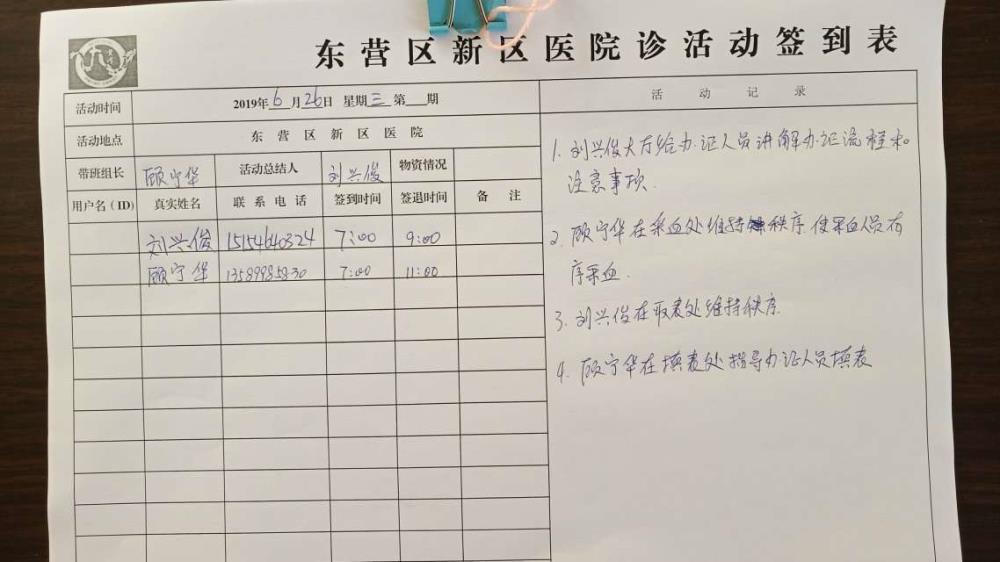 东营区新区医院诊活动签到表
活动时间 2019年6月26日 星期三 第 期
活动地点 东营区新区医院
带班组长 顾宁华 活动总结人 刘兴俊 物资情况
用户名(ID) 真实姓名 联系电话 签到时间 签退时间 备注
刘兴俊 15154640324 7:00 9:00
顾宁华 13589985830 7:00 11:00
活动记录
1. 刘兴俊大厅给办证人员讲解办证流程和
注意事项.
2. 顾宁华在采血处维持秩序使采血人员有
序采血.
3. 刘兴俊在取表处维持秩序
4. 顾宁华在填表处指导办证人员填表